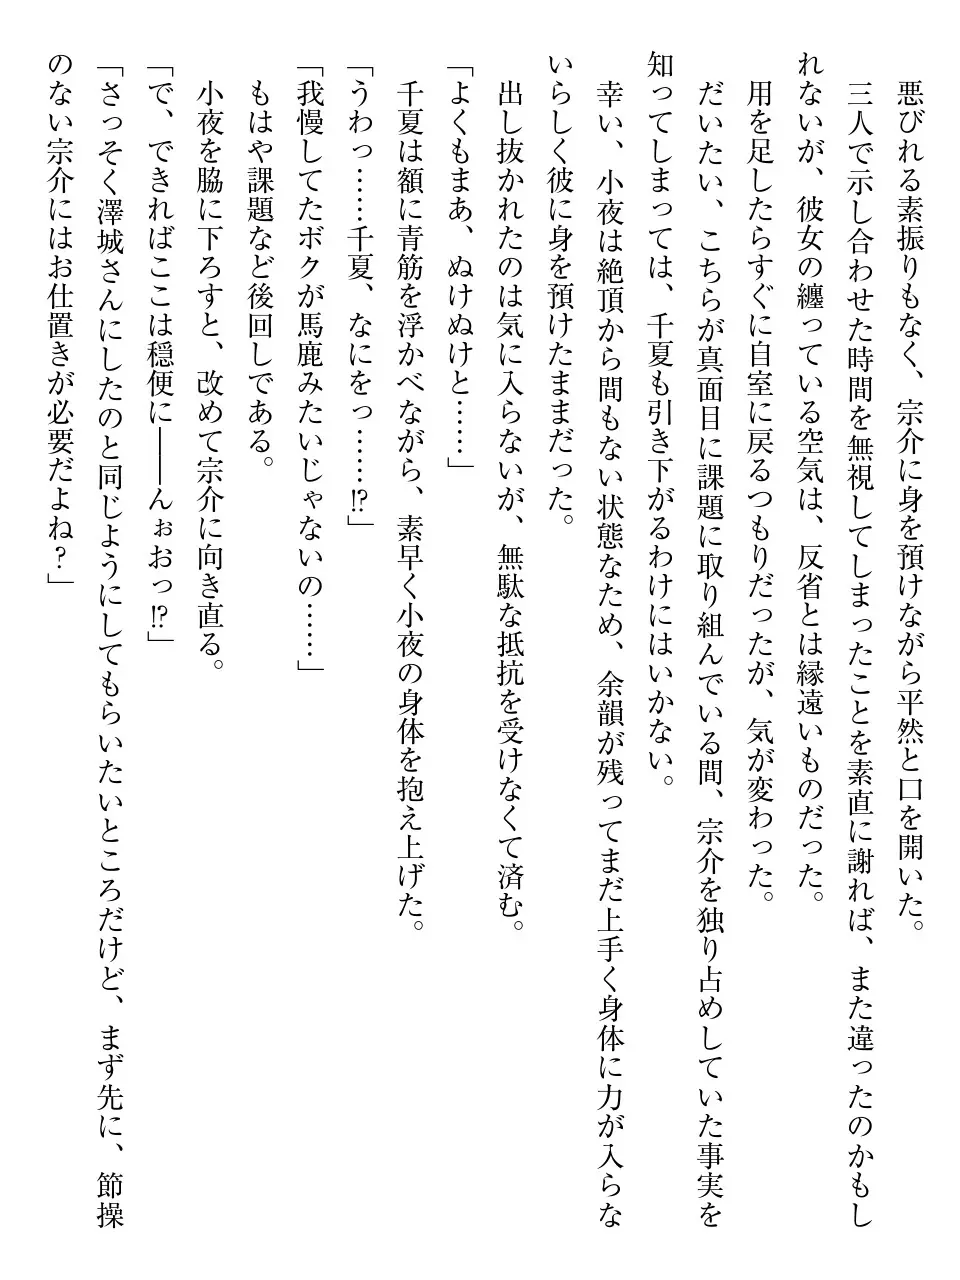 悪びれる素振りもなく、宗介に身を預けながら平然と口を開いた。
三人で示し合わせた時間を無視してしまったことを素直に謝れば、また違ったのかもし
れないが、彼女の纏っている空気は、反省とは縁遠いものだった。
用を足したらすぐに自室に戻るつもりだったが、気が変わった。
だいたい、こちらが真面目に課題に取り組んでいる間、宗介を独り占めしていた事実を
知ってしまっては、千夏も引き下がるわけにはいかない。
幸い、小夜は絶頂から間もない状態なため、余韻が残ってまだ上手く身体に力が入らな
いらしく彼に身を預けたままだった。
出し抜かれたのは気に入らないが、無駄な抵抗を受けなくて済む。
「よくもまあ、ぬけぬけと……」
千夏は額に青筋を浮かべながら、素早く小夜の身体を抱え上げた。
「うわっ……千夏、なにをっ……⁉」
「我慢してたボクが馬鹿みたいじゃないの……」
もはや課題など後回しである。
小夜を脇に下ろすと、改めて宗介に向き直る。
「で、できればここは穏便に――んぉおっ⁉」
「さっそく澤城さんにしたのと同じようにしてもらいたいところだけど、まず先に、節操
のない宗介にはお仕置きが必要だよね?」